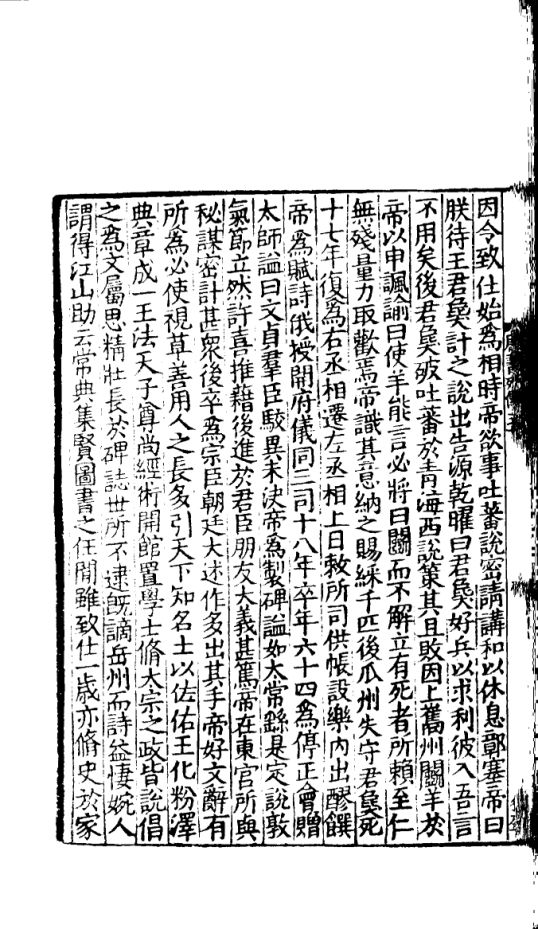 因令致仕始爲相時帝欲事吐蕃說密請講和以休息鄣塞帝曰
朕待王君㚟計之說出告源乾曜曰君㚟好兵以求利彼入吾言
不用矣後君㚟破吐蕃於青海西說策其且敗因上巂州鬬羊於
帝以申諷諭曰使羊能言必將曰鬬而不解立有死者所賴至仁
無殘量力取歡焉帝識其意納之賜綵千匹後瓜州失守君㚟死
十七年復爲右丞相遷左丞相上日敕所司供帳設樂內出醪饌
帝爲賦詩俄授開府儀同三司十八年卒年六十四爲停正會贈
太師謚曰文貞羣臣駮異未決帝爲製碑謚如太常繇是定說敦
氣節立然許喜推藉後進於君臣朋友大義甚篤帝在東宫所與
秘謀密計甚衆後卒爲宗臣朝廷大述作多出其手帝好文辭有
所爲必使視草善用人之長多引天下知名士以佐佑王化粉澤
典章成一王法天子尊尚經術開館置學士脩太宗之政皆說倡
之爲文屬思精壯長於碑誌世所不逮旣謫岳州而詩益悽婉人
謂得江山助云常典集賢圖書之任間雖致仕一歲亦脩史於家